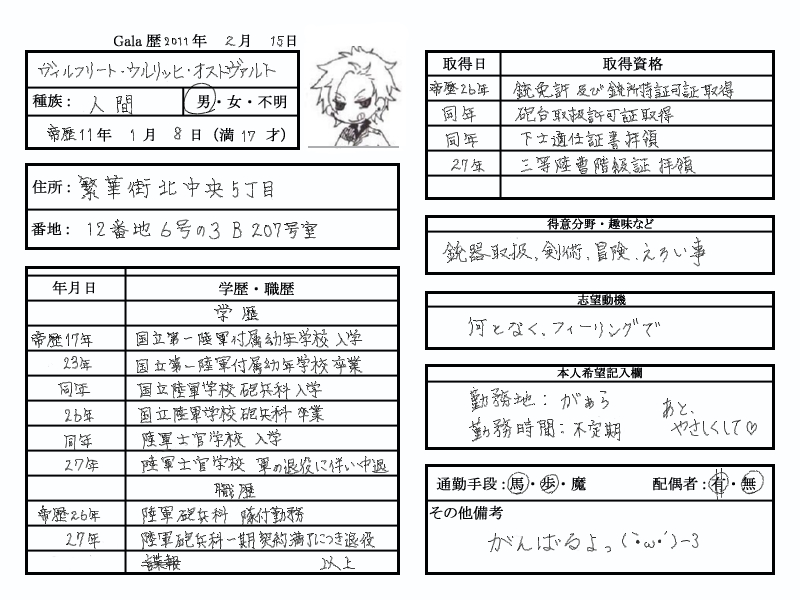 Gala 歴2011年 2月 15日
ヴィルフリート・ウルリッヒ・オストヴァルト
種族: 人間 男・女・不明
帝歴11年 1月 8日 (満17才)
住所: 繁華街北中央5丁目
番地: 12番地 6号の3 B 207号室
年月日 学歴・職歴
学歴
帝歴17年 国立第一陸軍付属幼年学校 入学
23年 国立第一陸軍付属幼年学校 卒業
同年 国立陸軍学校 砲兵科 入学
26年 国立陸軍学校 砲兵科 卒業
同年 陸軍士官学校 入学
27年 陸軍士官学校 軍の退役に伴い中退
職歴
帝歴26年 陸軍砲兵科 隊付勤務
27年 陸軍砲兵科一期契約満了につき退役
諜報 以上
取得日 取得資格
帝歴26年 銃免許及び銃所持証可証取得
同年 砲台取扱許可証取得
同年 下士適任証書拝領
27年 三等陸曹階級証 拝領
得意分野・趣味など
銃器取扱、剣術、冒険、えろい事
志望動機
何となく、フィーリングで
本人希望記入欄
勤務地: がぁら
勤務時間: 不定期
あと、
やさしくして♡
通勤手段: 馬・歩・魔 配偶者: 有・無
その他備考
がんばるよっ(`・ω・´)-3